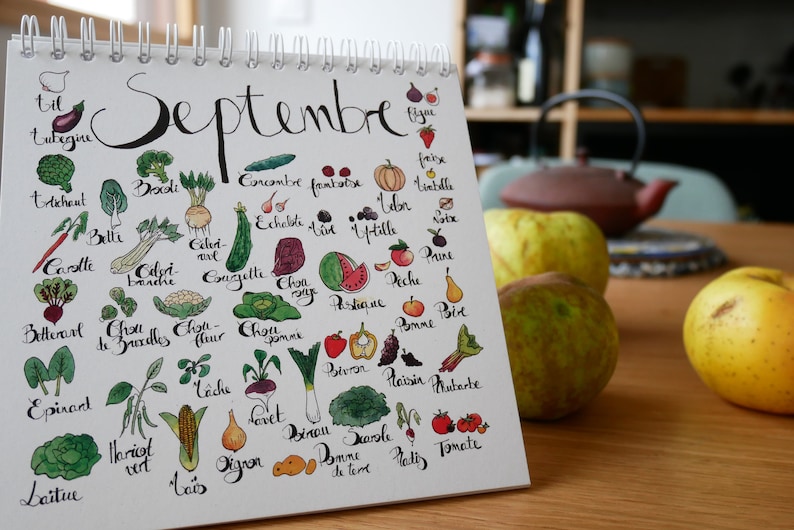 Septembre
Ail
Aubegine
Figue
fraise
Artichaut
Brocoli
Concombre
framboise
Melon
Mirabelle
Bette
Céleri-
rave
Echalote
Mûre
Myrtille
Noix
Carotte
Céleri-
branche
Courgette
Chou
rouge
Pastèque
Pêche
Prune
Betterave
Chou
de Bruxelles
Chou-
fleur
Chou
pommé
Pomme
Poire
Epinard
Mâche
Navet
Poivron
Raisin
Rhubarbe
Haricot
vert
Poireau
Scarole
Radis
Tomate
Laitue
Maïs
Oignon
Pomme
de terre